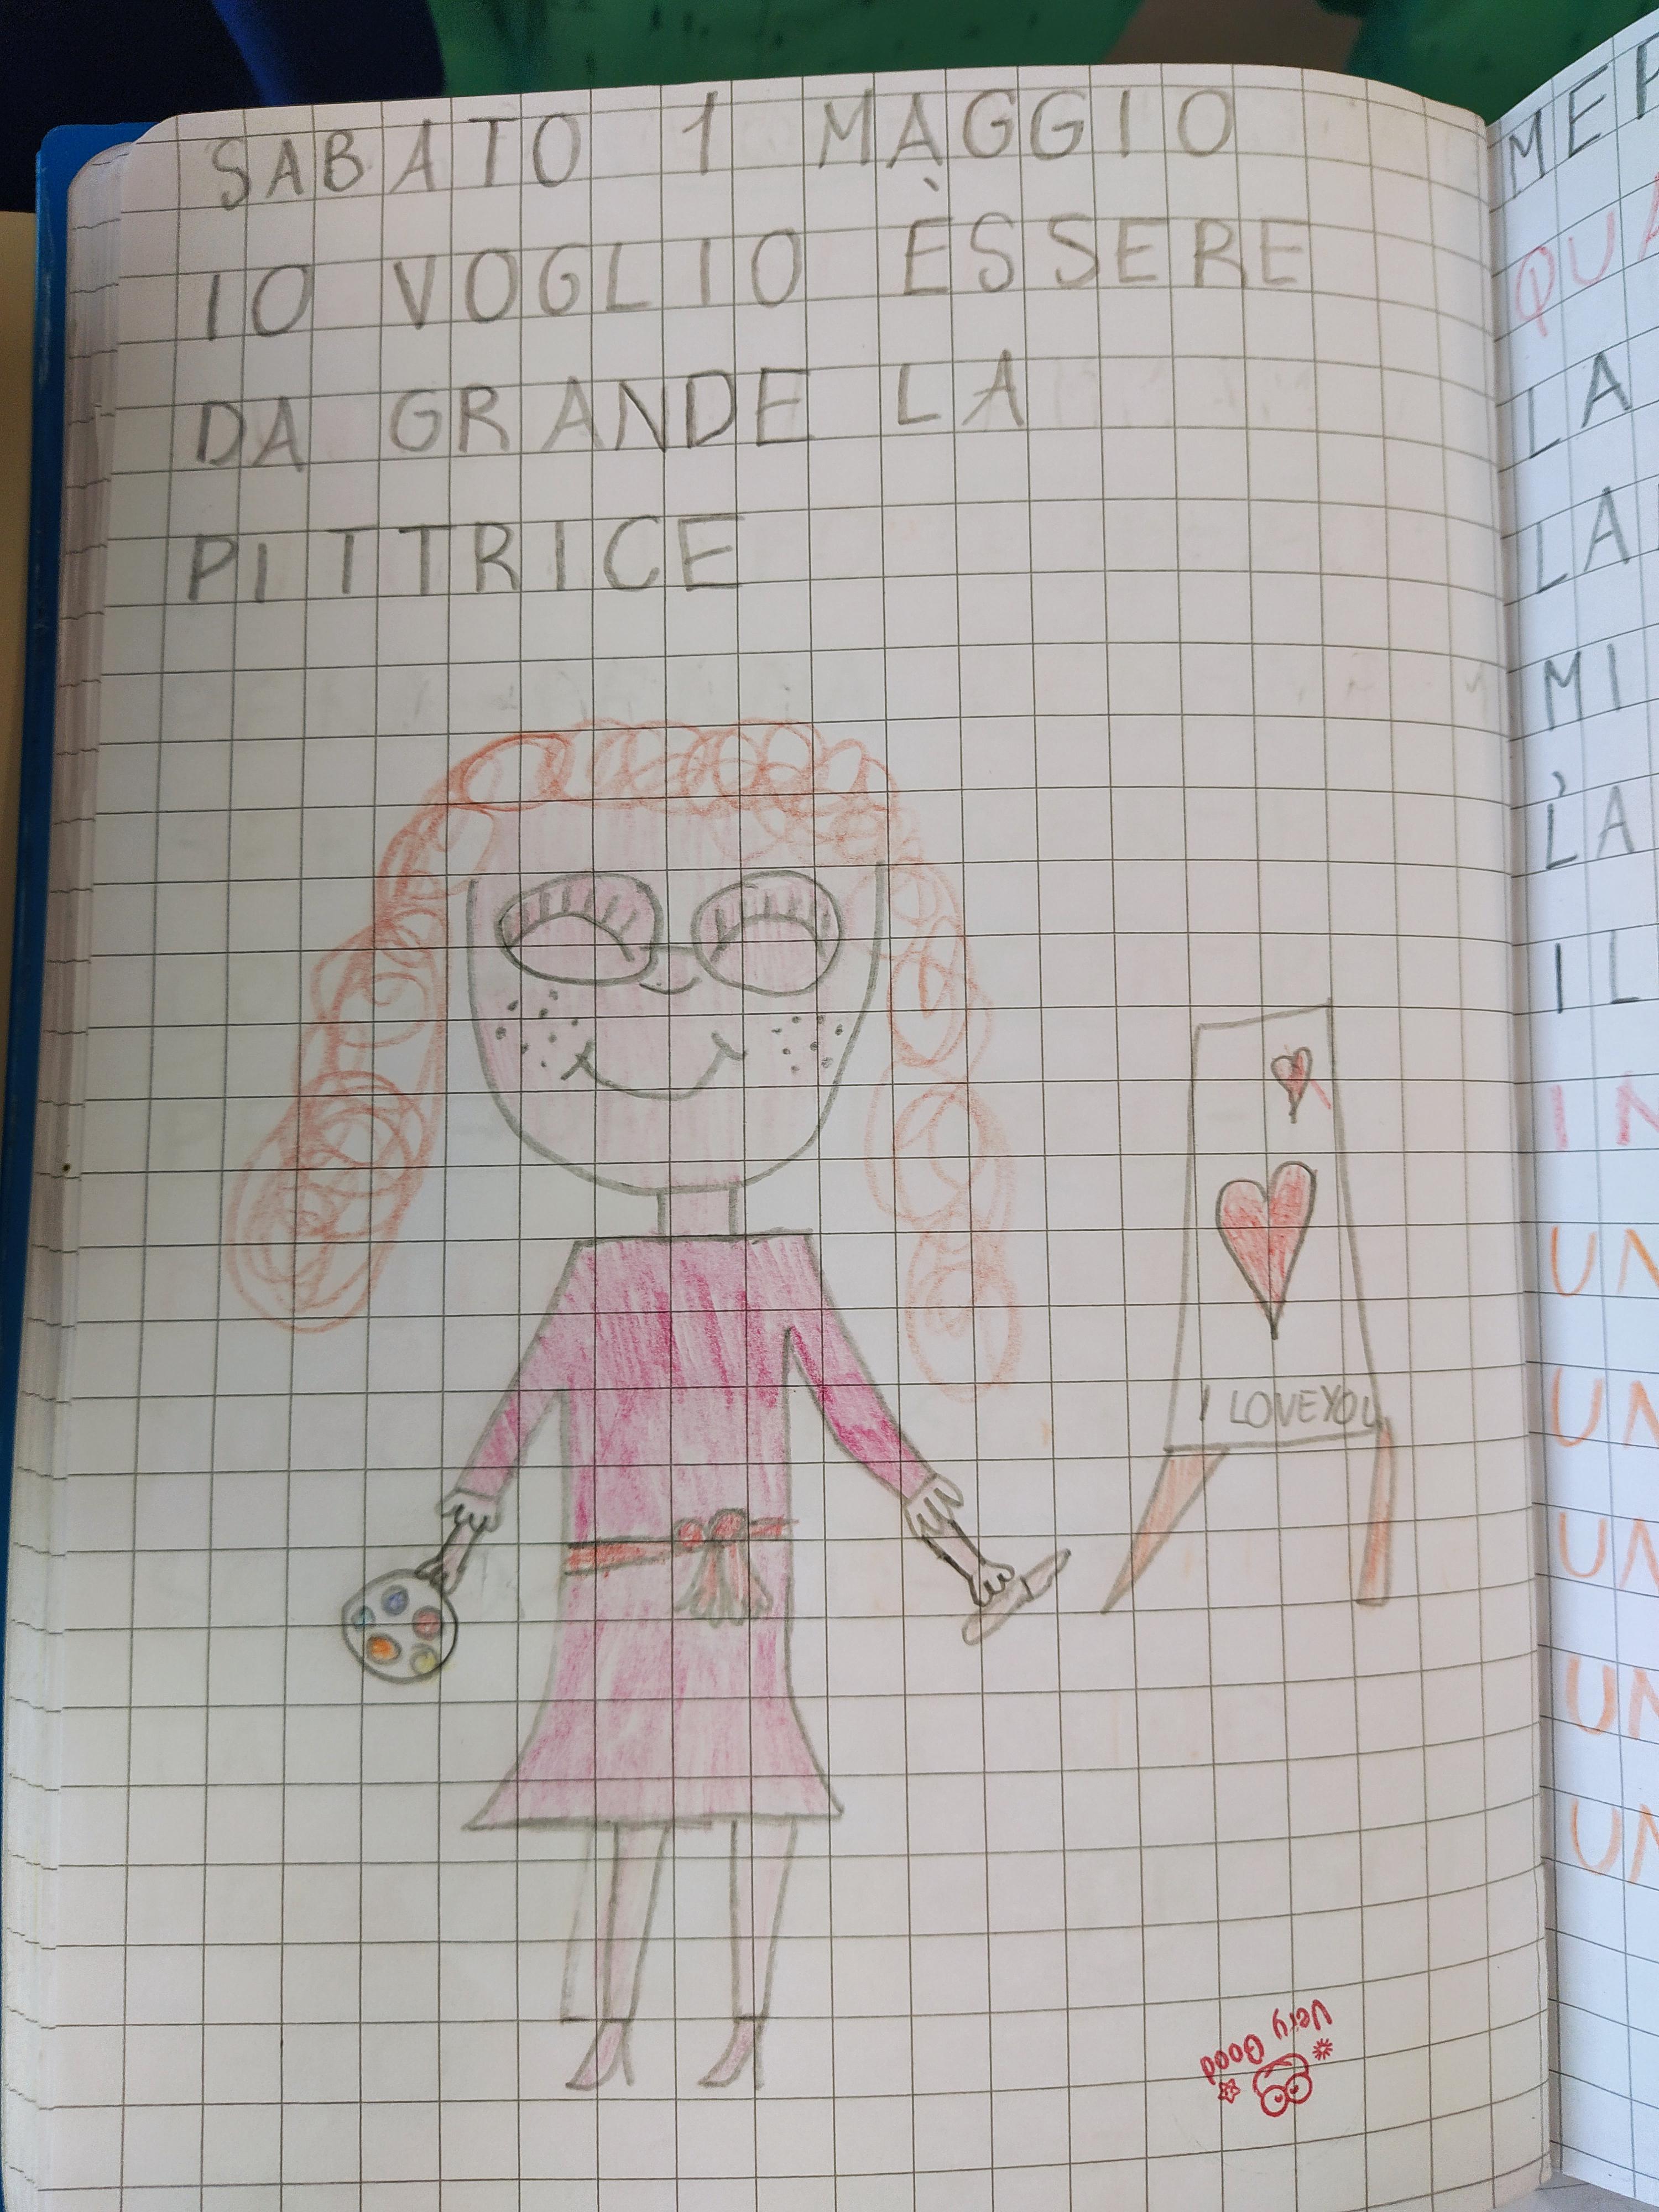 SABATO 1 MAGGIO
IO VOGLIO ÈSSERE
DA GRANDE LA
PITTRICE
I LOVE YOU
Very Good
QUA
LA
LA
MI
LA
IL
IN
UN
UN
UN
UN
UN